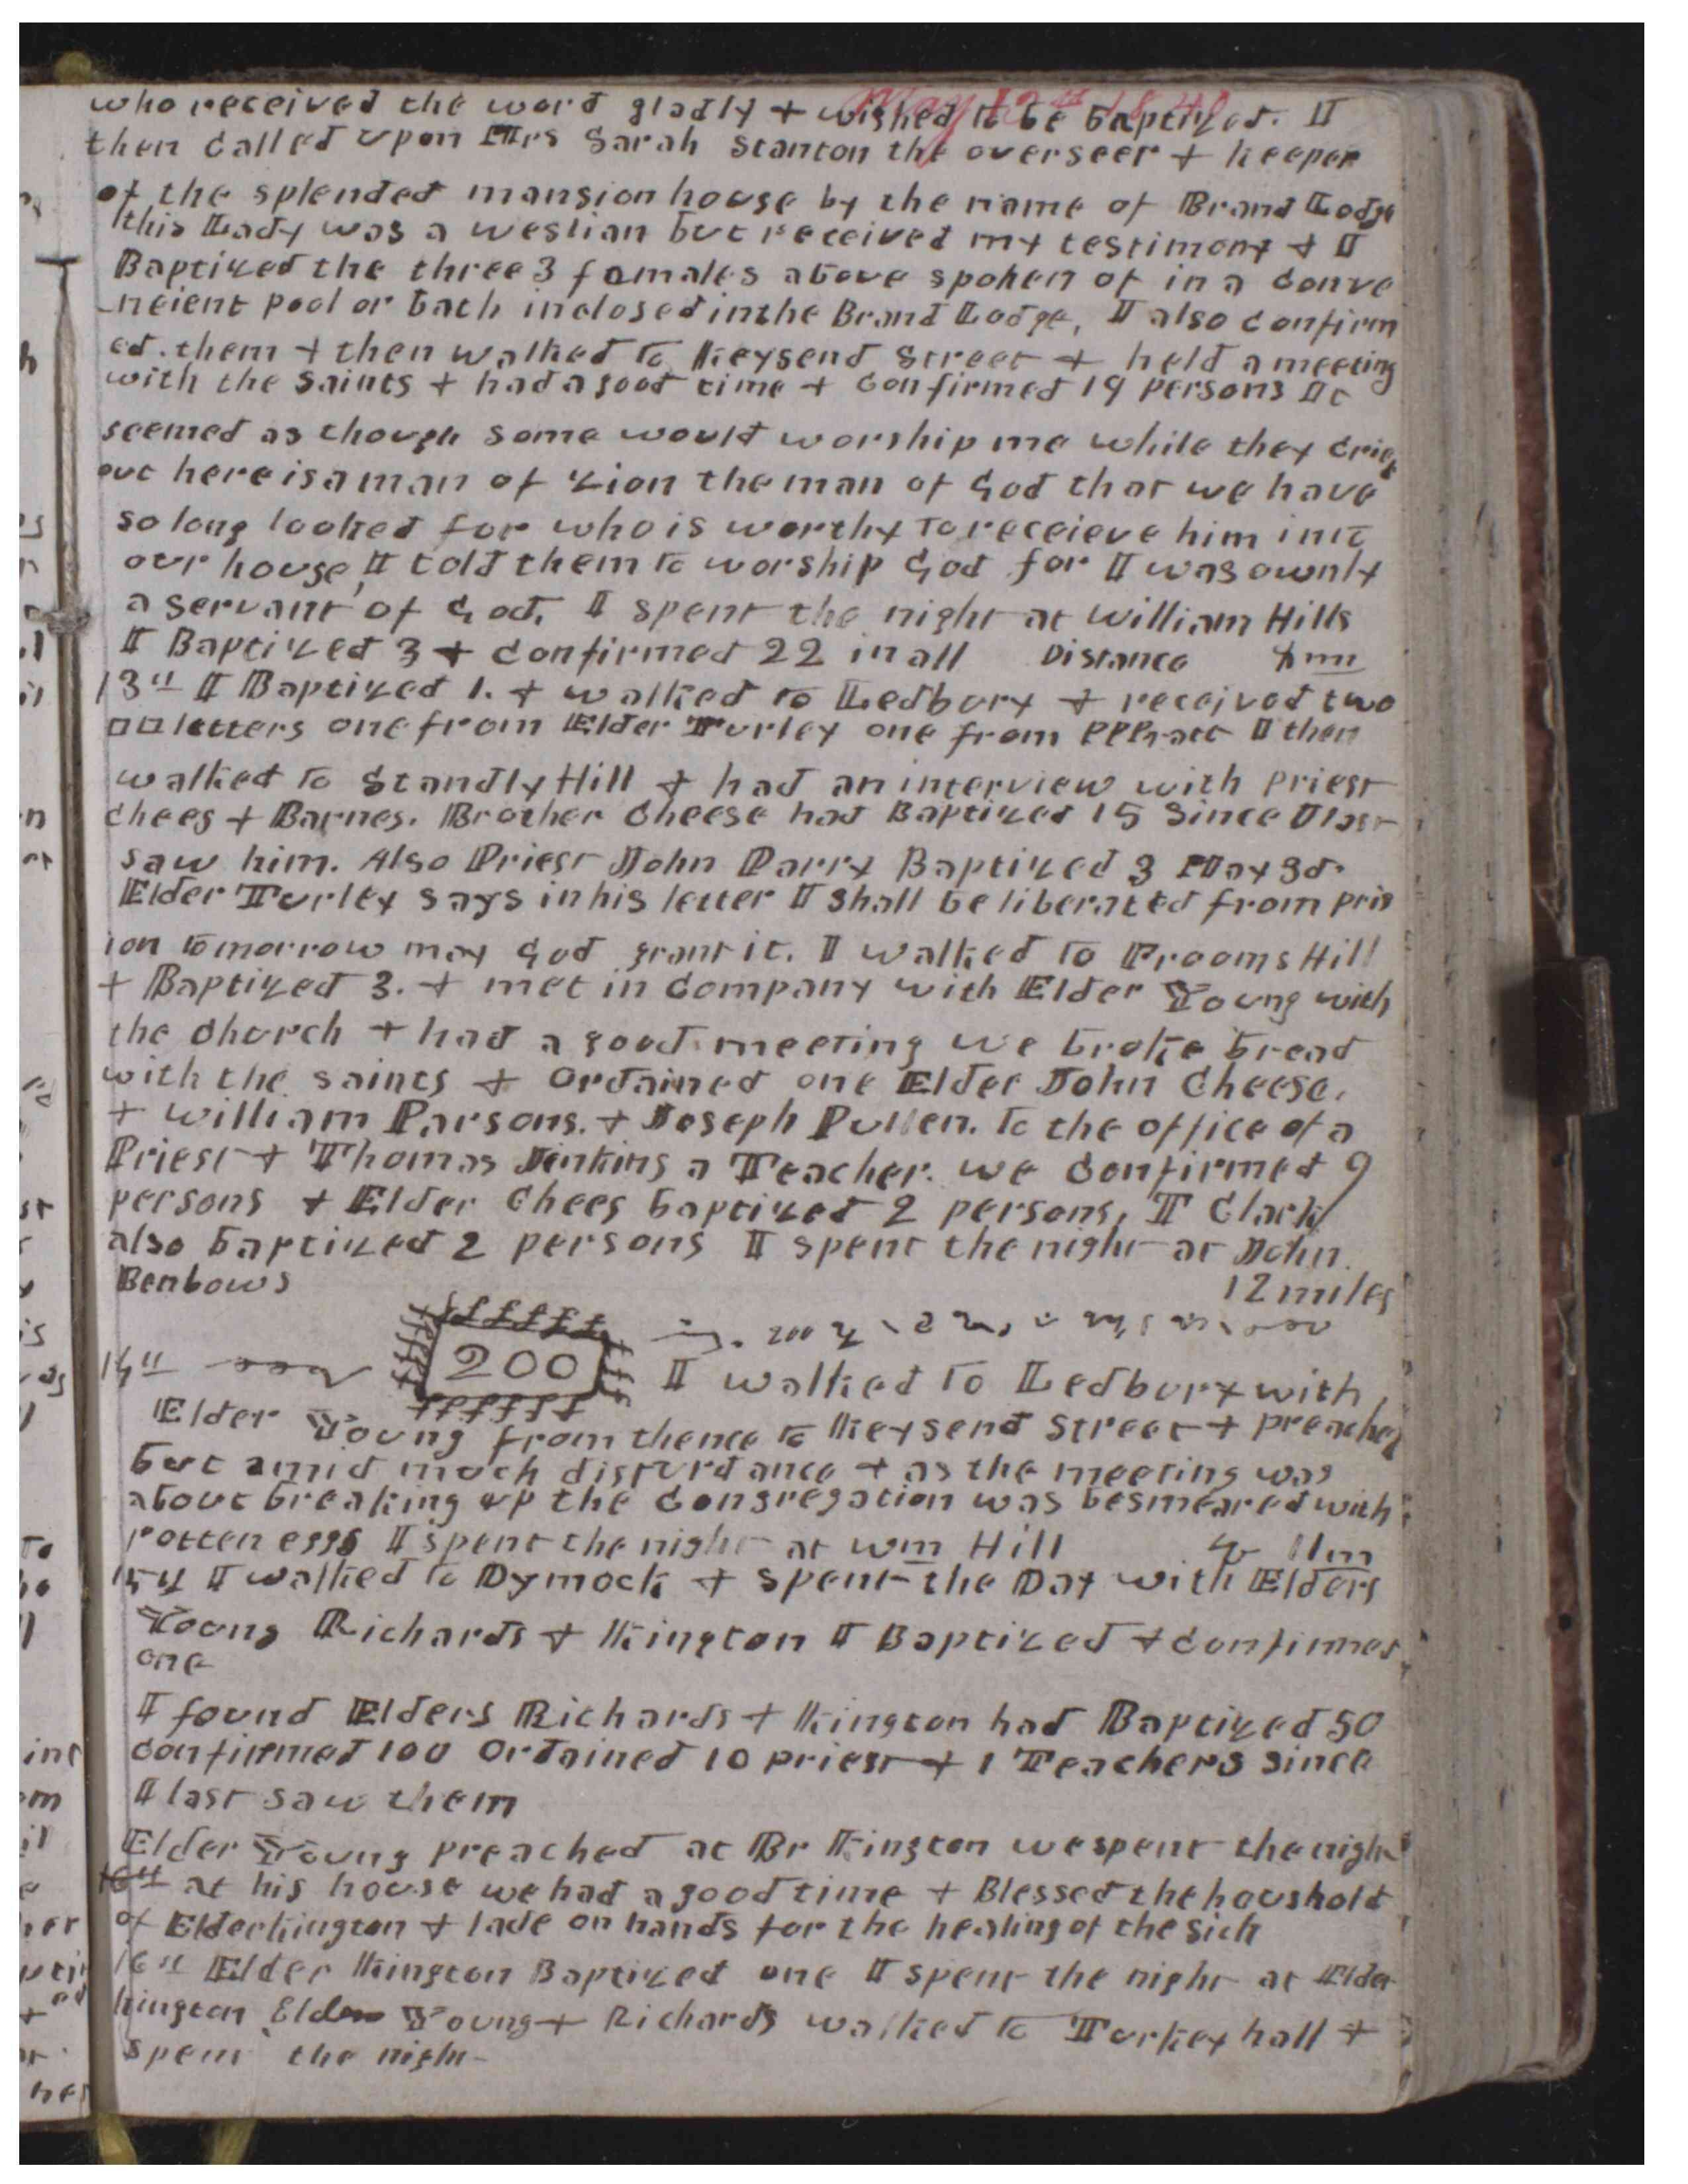 May 12th 1840
who received the word gladly + wished to be baptized. I
then called upon Mrs Sarah Stanton the overseer + keeper
of the splended mansion house by the name of Brand Lodge
this Lady was a weslian but received my testimony & I
Baptized the three 3 females above spoken of in a conve
-neient pool or bath inclosed in the Brand Lodge, I also confirm
ed. them + then walked to Keysend Street + held a meeting
with the Saints + had a good time + confirmed 19 persons It
seemed as though some would worship me while they cried
out here is a man of Zion the man of God that we have
so long looked for who is worthy to receieve him into
our house, I told them to worship God for I was ownly
a servant of God. I spent the night at William Hills
I Baptized 3 + confirmed 22 in all Distance
13th I Baptized 1. + walked to Ledbury + received two
letters one from Elder Turley one from PPPratt I then
walked to Standly Hill + had an interview with Priest
Chees + Barnes. Brother Cheese had Baptized 15 Since I last
saw him. Also Priest John Parry Baptized 3 May 3d.
Elder Turley says in his letter I shall be liberated from pris
ion tomorrow may God grant it. I walked to Frooms Hill
+ Baptized 3. + met in company with Elder Young with
the church + had a good meeting we broke bread
with the saints + ordained one Elder John Cheese,
+ William Parsons. + Joseph Pullen. to the office of a
Priest + Thomas Jenkins a Teacher. we confirmed 9
persons + Elder Chees baptized 2 persons, T Clark
also baptized 2 persons I spent the night at John
Benbows 12 miles
14th 200 I walked to Ledbury with
Elder Young from thence to Keysend Street + preached
but amid much disturdance + as the meeting was
about breaking up the congregation was besmeared with
rotten eggs I spent the night at Wm Hill 11 m
15th I walked to Dymock + spent the Day with Elders
Young Richards + Kington I Baptized + confirmed
one
I found Elders Richards + Kington had Baptized 50
confirmed 100 ordained 10 priest + 1 Teachers since
I last saw them
Elder Young preached at Br Kington we spent the night
16th at his house we had a good time + Blessed the houshold
of Elder Kington + lade on hands for the healing of the sick
16th Elder Kington Baptized one I spent the night at Elder
Kington Elder Young + Richards walked to Turkey hall +
spent the night